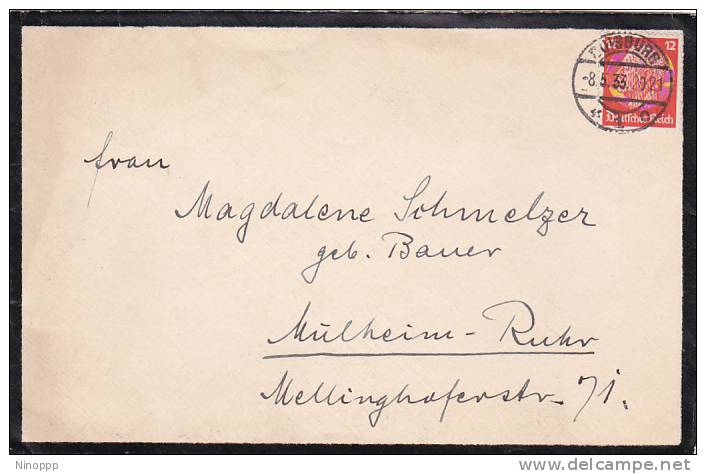 DUISBURG
12
-8.5.33.20-21
Deutsches Reich
Frau
Magdalene Schmelzer
geb. Bauer
Mülheim-Ruhr
Mellinghoferstr. 71.
Ninoppp
delcampe.net